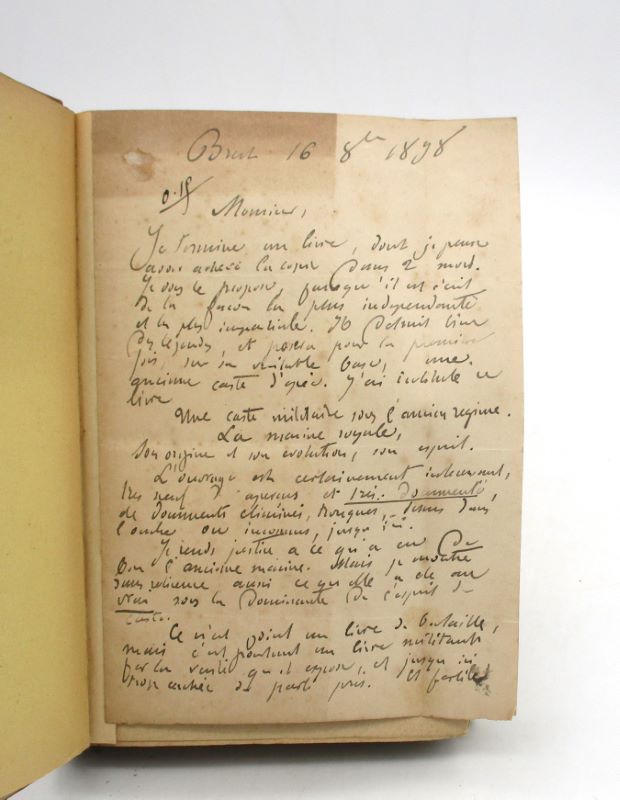 Brest 16 8bre 1898
Monsieur,
Je termine un livre, dont je pense
avoir achevé la copie dans 2 mois.
Je vous le propose, puisqu'il est écrit
de la façon la plus indépendante
et la plus impartiale. Il détruit bien
des légendes, et posera pour la première
fois, sur sa véritable base, une
ancienne caste d'épée. J'ai intitulé ce
livre
Une caste militaire sous l'ancien régime.
La marine royale,
Son origine et son évolution, son esprit.
L'ouvrage est certainement intéressant,
très neuf d'aperçus et très documenté,
de documents éliminés, tronqués, tenus dans
l'ombre ou inconnus, jusqu'ici.
Je rends justice à ce qu'a eu de
bon l'ancienne marine. Mais je montre
sans réticence aussi ce qu'elle a été au
vrai sous la dominante de l'esprit de
caste.
Ce n'est point un livre de bataille,
mais c'est pourtant un livre militant
par la vérité qu'il expose, et jusqu'ici
trop cachée de parti pris. Et